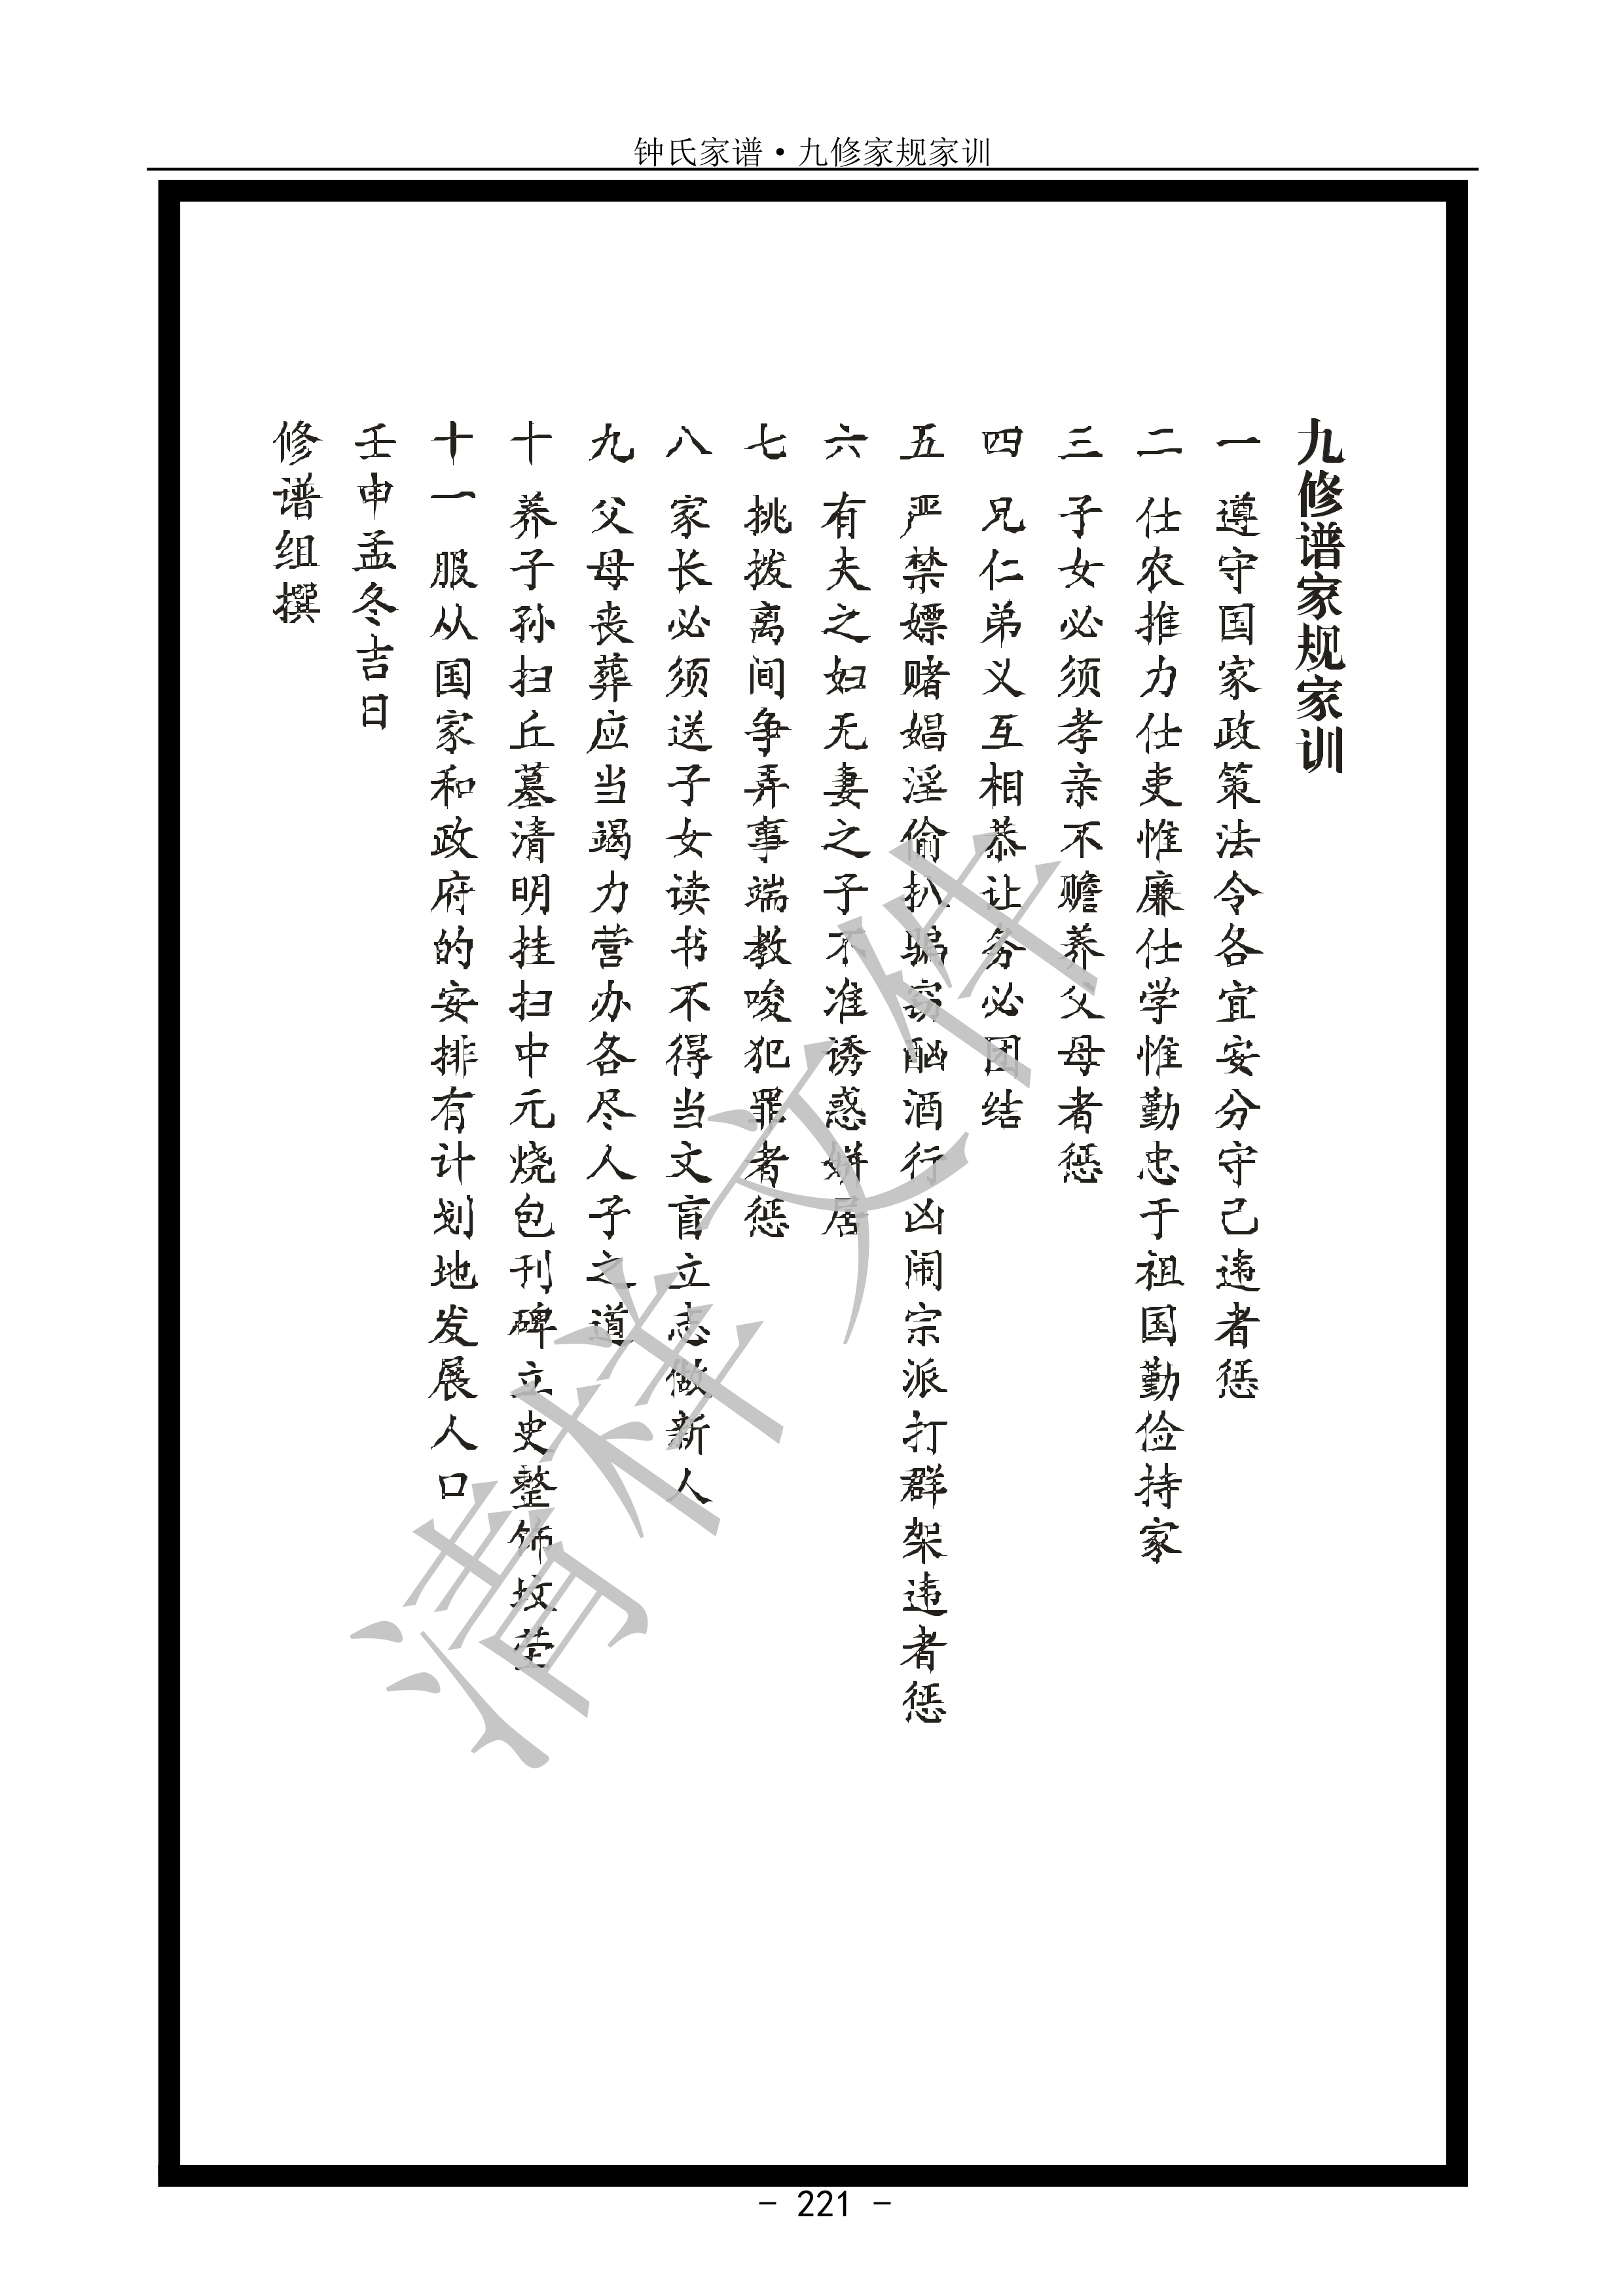 钟氏家谱·九修家规家训
九修谱家规家训
一 遵守国家政策法令各宜安分守己违者惩
二 仕农推力仕吏惟廉仕学惟勤忠于祖国勤俭持家
三 子女必须孝亲不赡养父母者惩
四 兄仁弟义互相恭让务必团结
五 严禁嫖赌娼淫偷扒骗窃酗酒行凶闹宗派打群架违者惩
六 有夫之妇无妻之子不准诱惑姘居
七 挑拨离间争弄事端教唆犯罪者惩
八 家长必须送子女读书不得当文盲立志做新人
九 父母丧葬应当竭力营办各尽人子之道
十 养子孙扫丘墓清明挂扫中元烧包刊碑立史整饰坟茔
十一 服从国家和政府的安排有计划地发展人口
壬申孟冬吉日
修谱组撰
清样文件
- 221 -